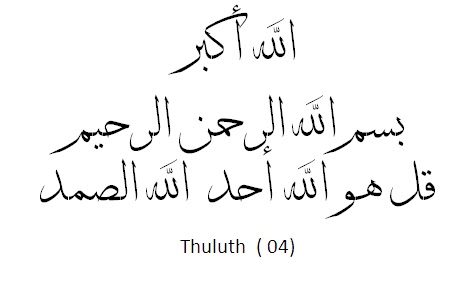 الله أكبر
بسم الله الرحمن الرحيم
قل هو الله أحد الله الصمد
Thuluth ( 04)